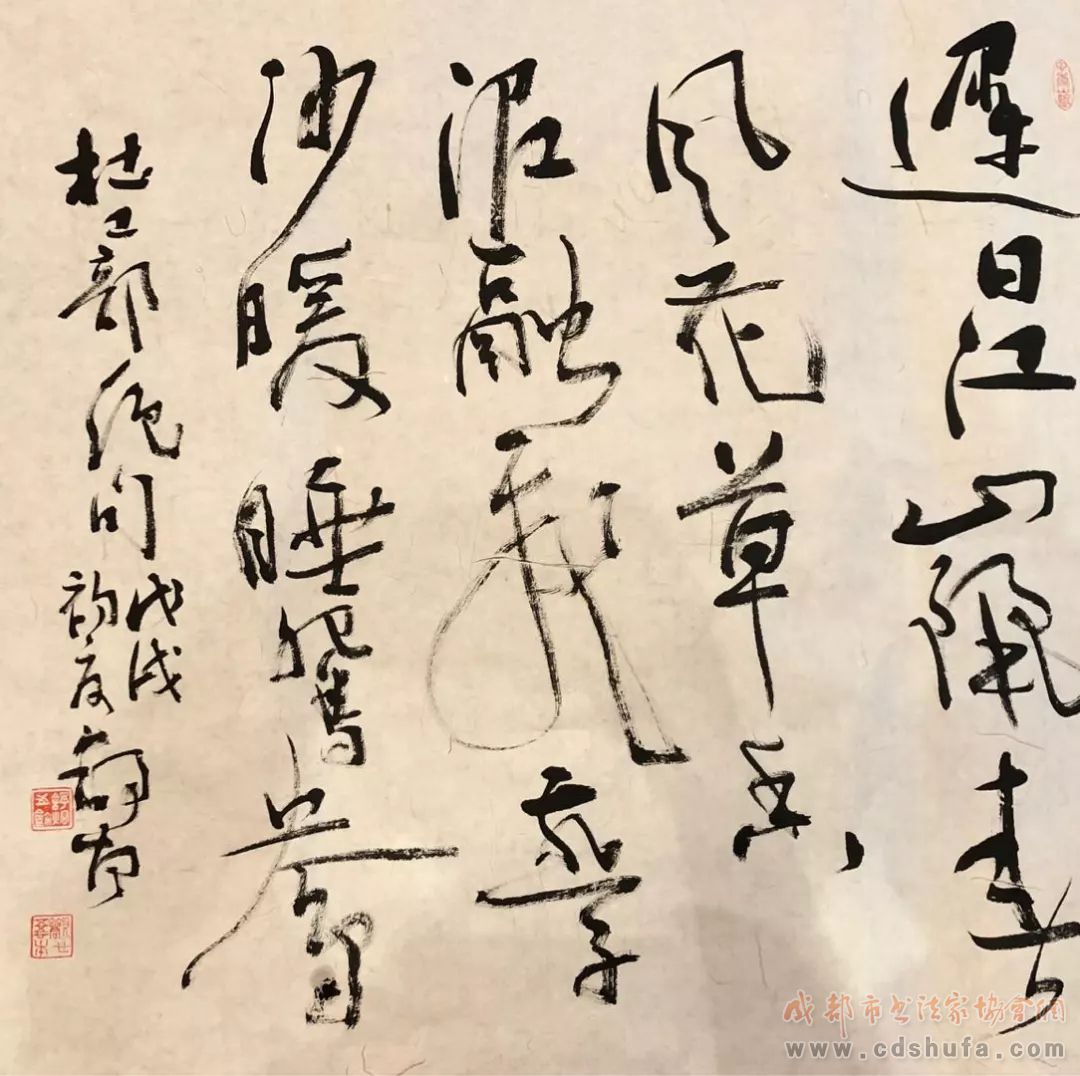 遲日江山麗春
风花草香
泥融飛燕子
沙暖睡鴛鴦
杜工部絕句
戊戌
初夏
成都市书法家協會網
www.cdshufa.com